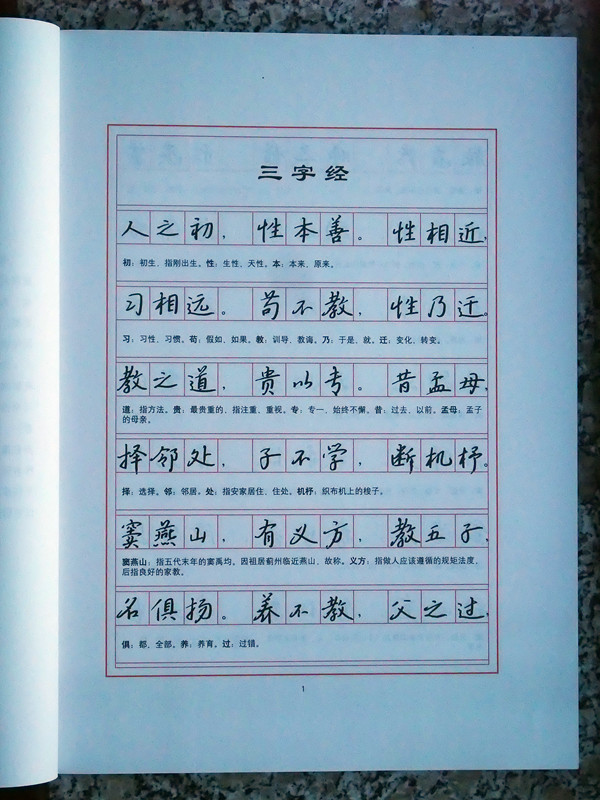 三字经
人之初，性本善。性相近，
初：初生，指刚出生。性：生性、天性。本：本来、原来。
习相远。苟不教，性乃迁。
习：习性、习惯。苟：假如、如果。教：训导、教诲。乃：于是、就。迁：变化、转变。
教之道，贵以专。昔孟母，
道：指方法。贵：最贵重的，指注重、重视。专：专一、始终不懈。昔：过去、以前。孟母：孟子
的母亲。
择邻处，子不学，断机杼。
择：选择。邻：邻居。处：指安家居住、住处。机杼：织布机上的梭子。
窦燕山，有义方，教五子，
窦燕山：指五代末年的窦禹均。因祖居蓟州临近燕山，故称。义方：指做人应该遵循的规矩法度，
后指良好的家教。
名俱扬。养不教，父之过，
俱：都、全部。养：养育。过：过错。
1